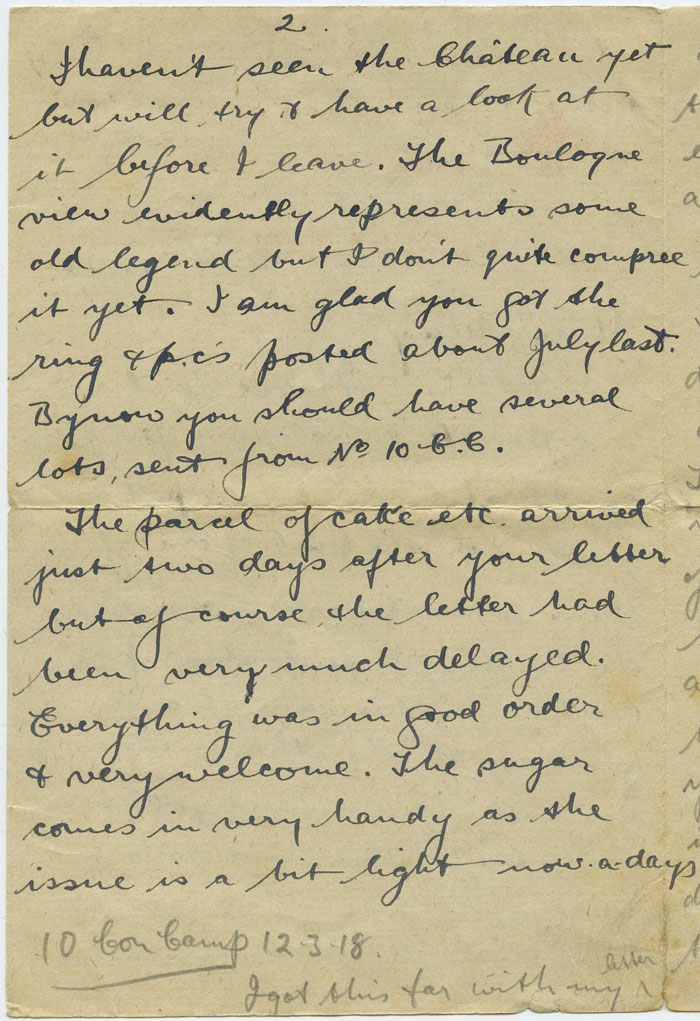 2.
I haven't seen the Château yet
but will try & have a look at
it before I leave. The Boulogne
view evidently represents some
old legend but I don't quite compree
it yet. I am glad you got the
ring & p.c's posted about July last.
By now you should have several
lots, sent from No 10 C.C.
The parcel of cake etc. arrived
just two days after your letter
but of course the letter had
been very much delayed.
Everything was in good order
& very welcome. The sugar
comes in very handy as the
issue is a bit light now-a-days
10 Con Camp 12.3.18.
letter
I got this far with my